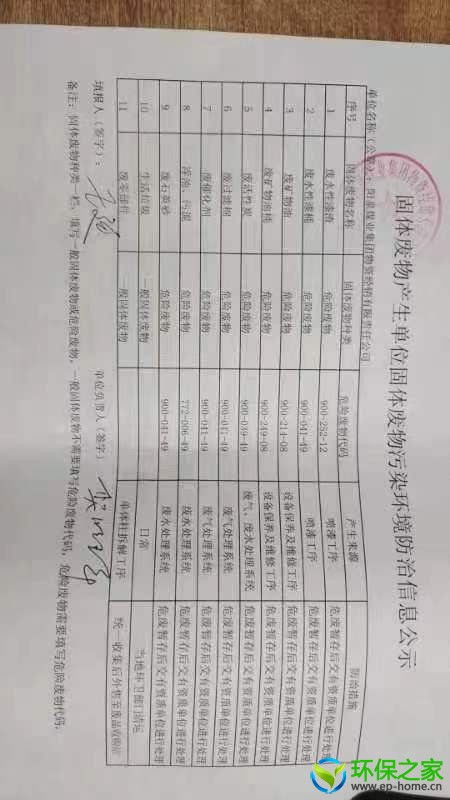 固体废物产生单位固体废物污染环境防治信息公示
单位名称（公章）：阳泉煤业集团物资经销有限责任公司
序号 固体废物名称 固体废物种类 危险废物代码 产生来源 防治措施
1 废水性漆渣 危险废物 900-252-12 喷漆工序 危废暂存后交有资质单位进行处理
2 废水性漆桶 危险废物 900-041-49 喷漆工序 危废暂存后交有资质单位进行处理
3 废矿物油 危险废物 900-214-08 设备保养及维修工序 危废暂存后交有资质单位进行处理
4 废矿物油桶 危险废物 900-249-08 设备保养及维修工序 危废暂存后交有资质单位进行处理
5 废活性炭 危险废物 900-039-49 废气、废水处理系统 危废暂存后交有资质单位进行处理
6 废过滤棉 危险废物 900-041-49 废气处理系统 危废暂存后交有资质单位进行处理
7 废催化剂 危险废物 900-041-49 废气处理系统 危废暂存后交有资质单位进行处理
8 浮油、污泥 危险废物 772-006-49 废水处理系统 危废暂存后交有资质单位进行处理
9 废石英砂 危险废物 900-041-49 废水处理系统 危废暂存后交有资质单位进行处理
10 生活垃圾 一般固体废物 日常 当地环卫部门清运
11 废零部件 一般固体废物 单体柱拆解工序 统一收集后外售至废品收购站
填报人（签字）： 单位负责人（签字）
备注：固体废物种类一栏，填写一般固体废物或危险废物，一般固体废物不需要填写危险废物代码，危险废物需要填写危险废物代码。
环保之家
www.ep-home.cn